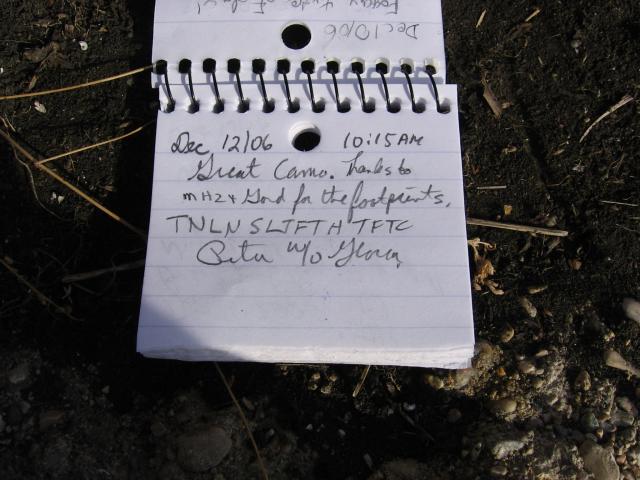 Dec 10/06
Dec 12/06 10:15 AM
Great Camo. Thanks to
mHz + Gord for the footprints.
TNLN SLTFTH TFTC
Peter w/o Gloria